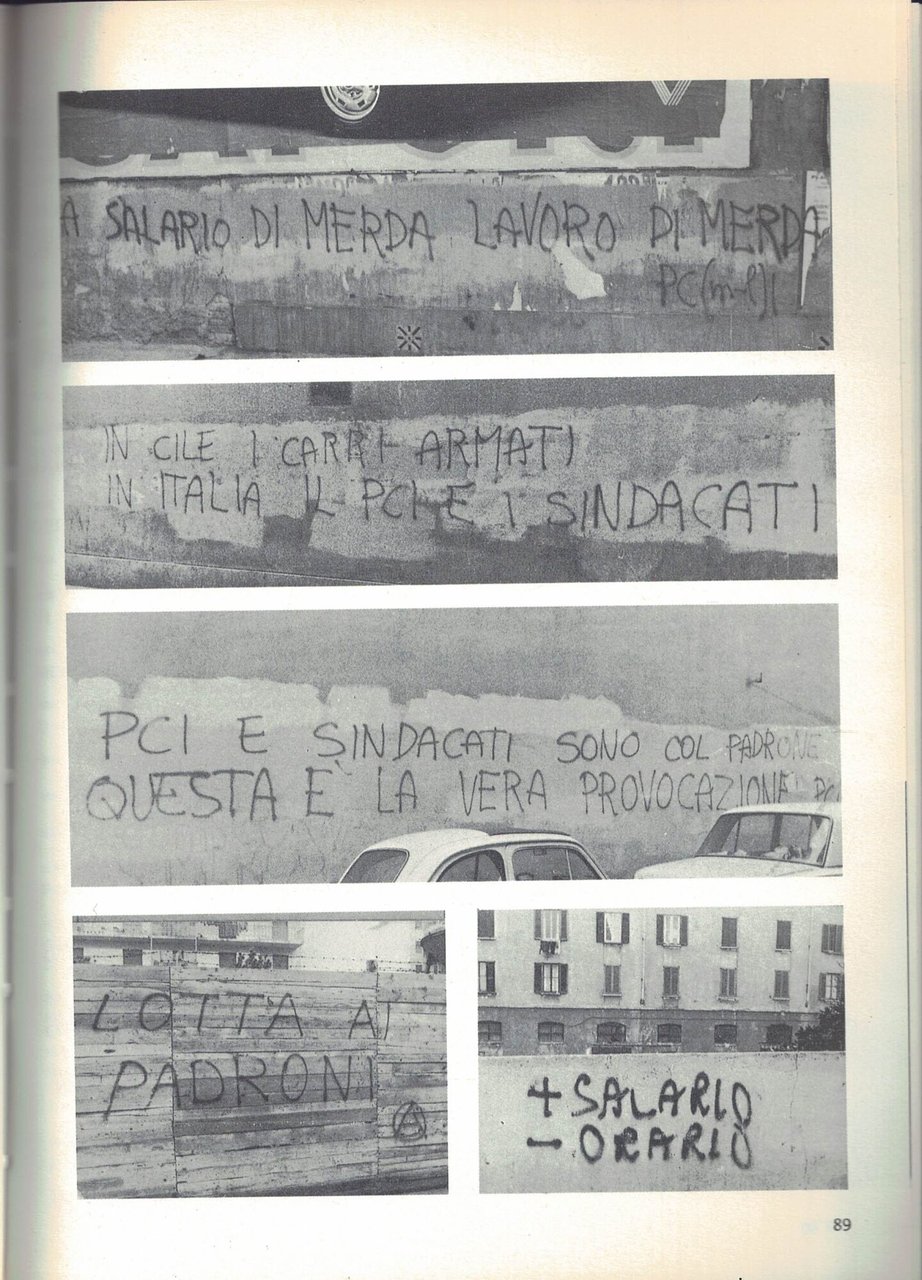 A SALARIO DI MERDA LAVORO DI MERDA
PC(m-l)I
IN CILE I CARRI ARMATI
IN ITALIA IL PCI E I SINDACATI
PCI E SINDACATI SONO COL PADRONE
QUESTA È LA VERA PROVOCAZIONE
LOTTA AI
PADRONI
+ SALARIO
- ORARIO
89